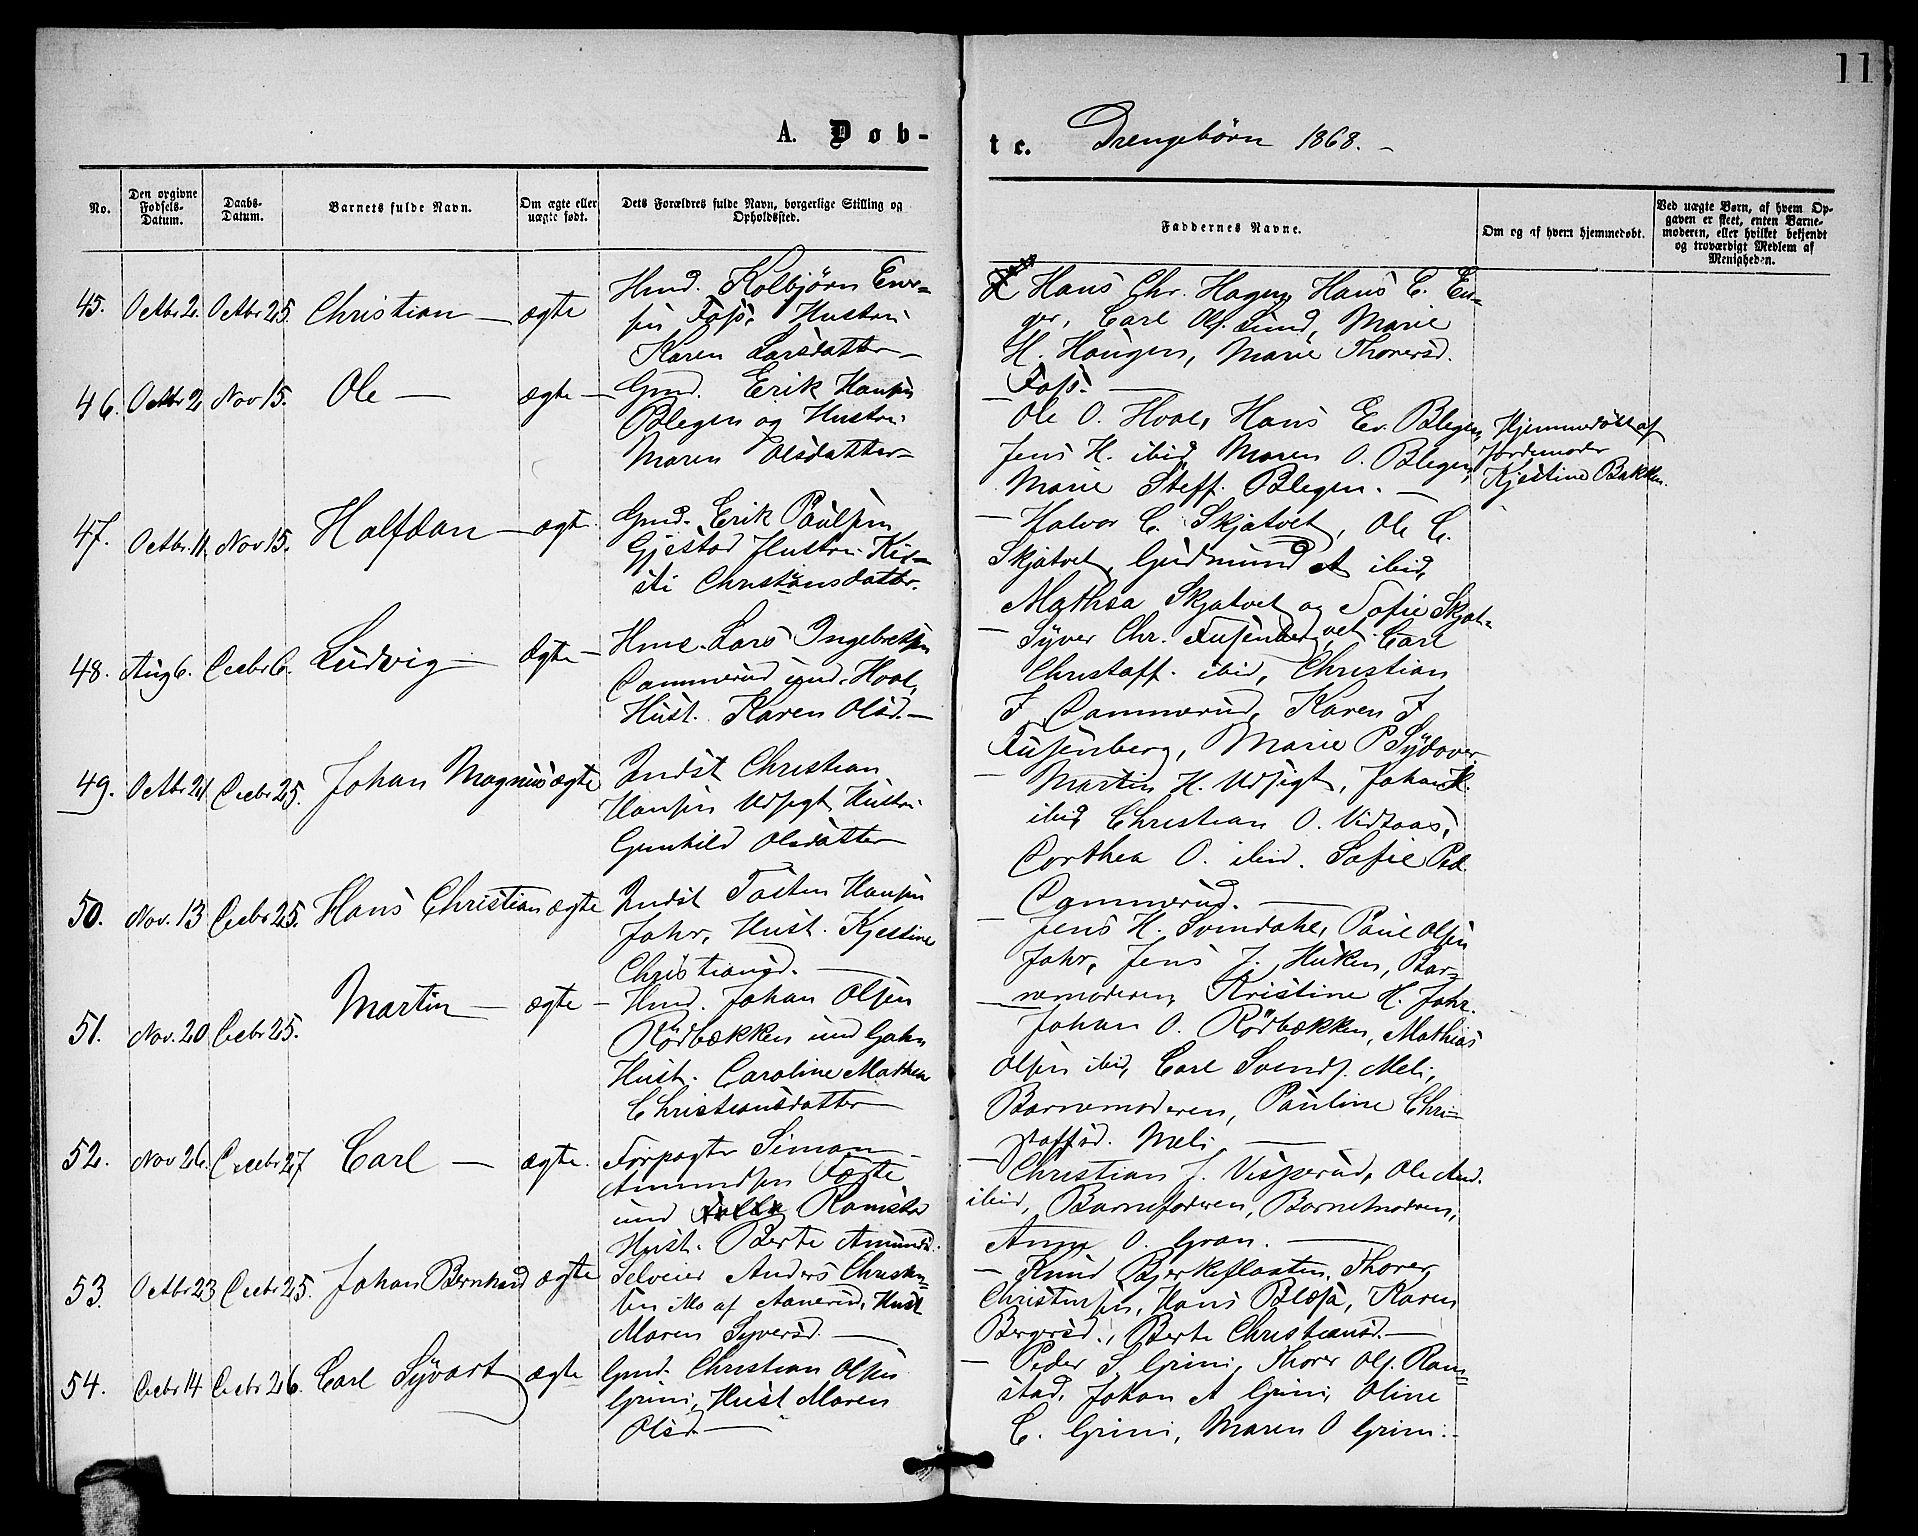 11
A. Døb-
te. Drengebørn 1868.
No.
Den opgivne Fødsels-Datum.
Daabs-Datum.
Barnets fulde Navn.
Om ægte eller uægte født.
Dets Forældres fulde Navn, borgerlige Stilling og Opholdssted.
Faddernes Navne.
Om og af hvem hjemmedøbt.
Ved uægte Børn, af hvem Opgaven er skeet, enten Barnemoderen, eller hvilket bekjendt og troværdigt Medlem af Menigheden.
45. Octbr 2. Octbr 25. Christian — ægte
Hmd. Kolbjørn Ever=
sen Foss. Hustru
Karen Larsdatter —
Hans Chr. Hagen, Hans E. En=
ger, Carl Ols. Lund, Marie
H. Haugen, Marie Thoresd.
Foss. —
46. Octbr 2 Nov 15. Ole — ægte —
Gmd. Erik Hansen
Blegen og Hustru
Maren Olsdatter —
Ole O. Hoel, Hans Er. Blegen,
Jens H. ibid, Maren O. Blegen,
Marie Steff. Blegen. —
Hjemmedøbt af
Jordemoder
Kjestine Bakken.
47. Octbr. 11. Nov 15. Halfdan — ægte
Gmd. Erik Paulsen
Gjestad Hustru Kir=
sti Christiansdatter.
— Halvor C. Skjatvet, Ole C.
Skjatvet, Gudmund A ibid,
Mathea Skjatvet og Sofie Skjat=
vet.
48. Aug 6. Decbr 6. Ludvig — ægte —
Hmd. Lars Ingebretsen
Dammerud und. Hoel,
Hust. Karen Olsd. —
— Syver Chr. Fusenberg, Carl
Christoff. ibid, Christian
J. Dammerud, Karen J
Fusenberg, Marie P Sydover.
49. Octbr 21. Decbr 25. Johan Magnus ægte
Indst Christian
Hansen Udsigt Hustru
Gunhild Olsdatter
— Martin H. Udsigt, Johan H.
ibid, Christian O. Vidsaas,
Dorthea O. ibid. Sofie Ped
Dammerud. —
50. Nov. 13 Decbr 25. Hans Christian ægte
Indst Tosten Hansen
Johr, Hust. Kjestine
Christiansd. —
— Jens H. Svindahl, Paul Olsen
Johr, Jens J. Huken, Bar=
nemoderen, Kristine H. Johr.
51. Nov. 20 Decbr 25. Martin — ægte —
Hmd. Johan Olsen
Rødbækken und Gahn
Hust. Caroline Mathea
Christiansdatter —
— Johan O. Rødbækken, Mathias
Olsen ibid, Carl Svends. Meli,
Barnemoderen, Pauline Chri=
stoffsd. Meli —
52. Nov 26. Decbr 27 Carl — ægte.
Forpagter Simon
Amundsen Fægte
und Ramstad
Hust. Berte Amunds.
— Christian J. Visperud, Ole And.
ibid, Barnefaderen, Barnemodren,
Anne O. Gran. —
53. Octbr 23 Decbr 25. Johan Bernhard ægte
Selveier Anders Christen=
sen Mo af Aanerud, Hust
Maren Syversd. —
— Knud Bjerkeflaaten, Thorer
Christensen, Hans Blæsa, Karen
Bergersd., Berte Christiansd. —
54. Decbr 14 Decbr 26. Carl Syvart ægte
Gmd. Christian Olsen
Grini, Hust Maren
Olsd. —
— Peder S Grini, Thorer Ols. Ram=
stad, Johan A Grini, Oline
C. Grini, Maren O Grini. —